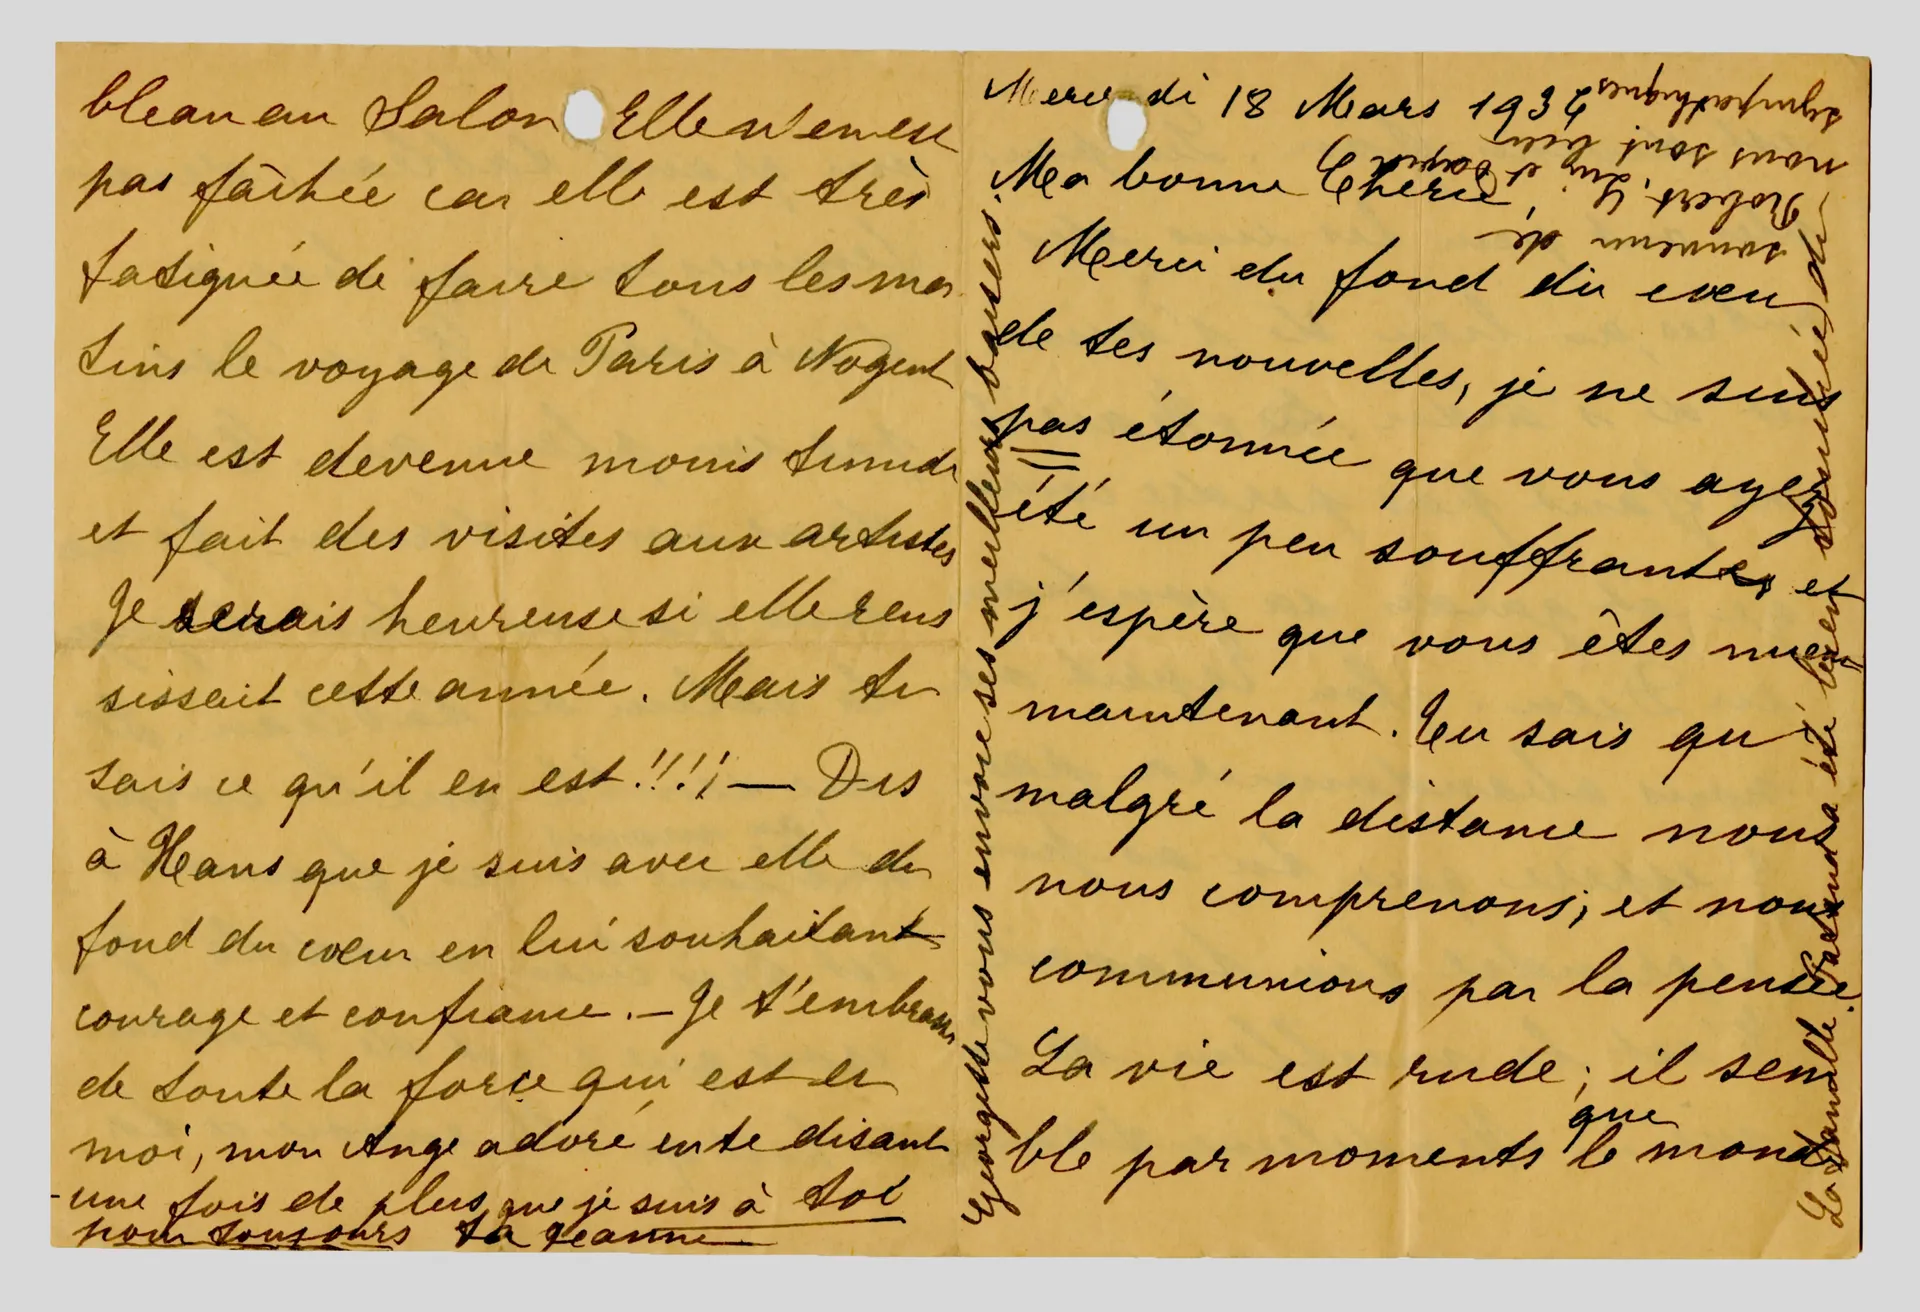 Mercredi 18 Mars 1932
Ma bonne Chérie,
Merci du fond du cœur
de tes nouvelles, je ne suis
pas étonnée que vous ayez
été un peu souffrantes et
j'espère que vous êtes mieux
maintenant. Tu sais qu
malgré la distance nous
nous comprenons, et nous
communions par la pensée.
La vie est rude ; il sem
ble par moments que le monde
bleau au Salon Elle n'en est
pas fâchée car elle est très
fatiguée de faire tous les ma
tins le voyage de Paris à Nogent
Elle est devenue moins timide
et fait des visites aux artistes
Je serais heureuse si elle reus
sissait cette année. Mais tu
sais ce qu'il en est !!!! — Dis
à Hans que je suis avec elle du
fond du cœur en lui souhaitant
courage et confiance. — Je t'embrasse
de toute la force qui est en
moi, mon Ange adoré en te disant
une fois de plus que je suis à toi
pour toujours ta Jeanne
Georgette vous envoie ses meilleurs baisers.
La famille a été bien de
souvenir de
Robert, Luy et
nous sont bien
sympathiques